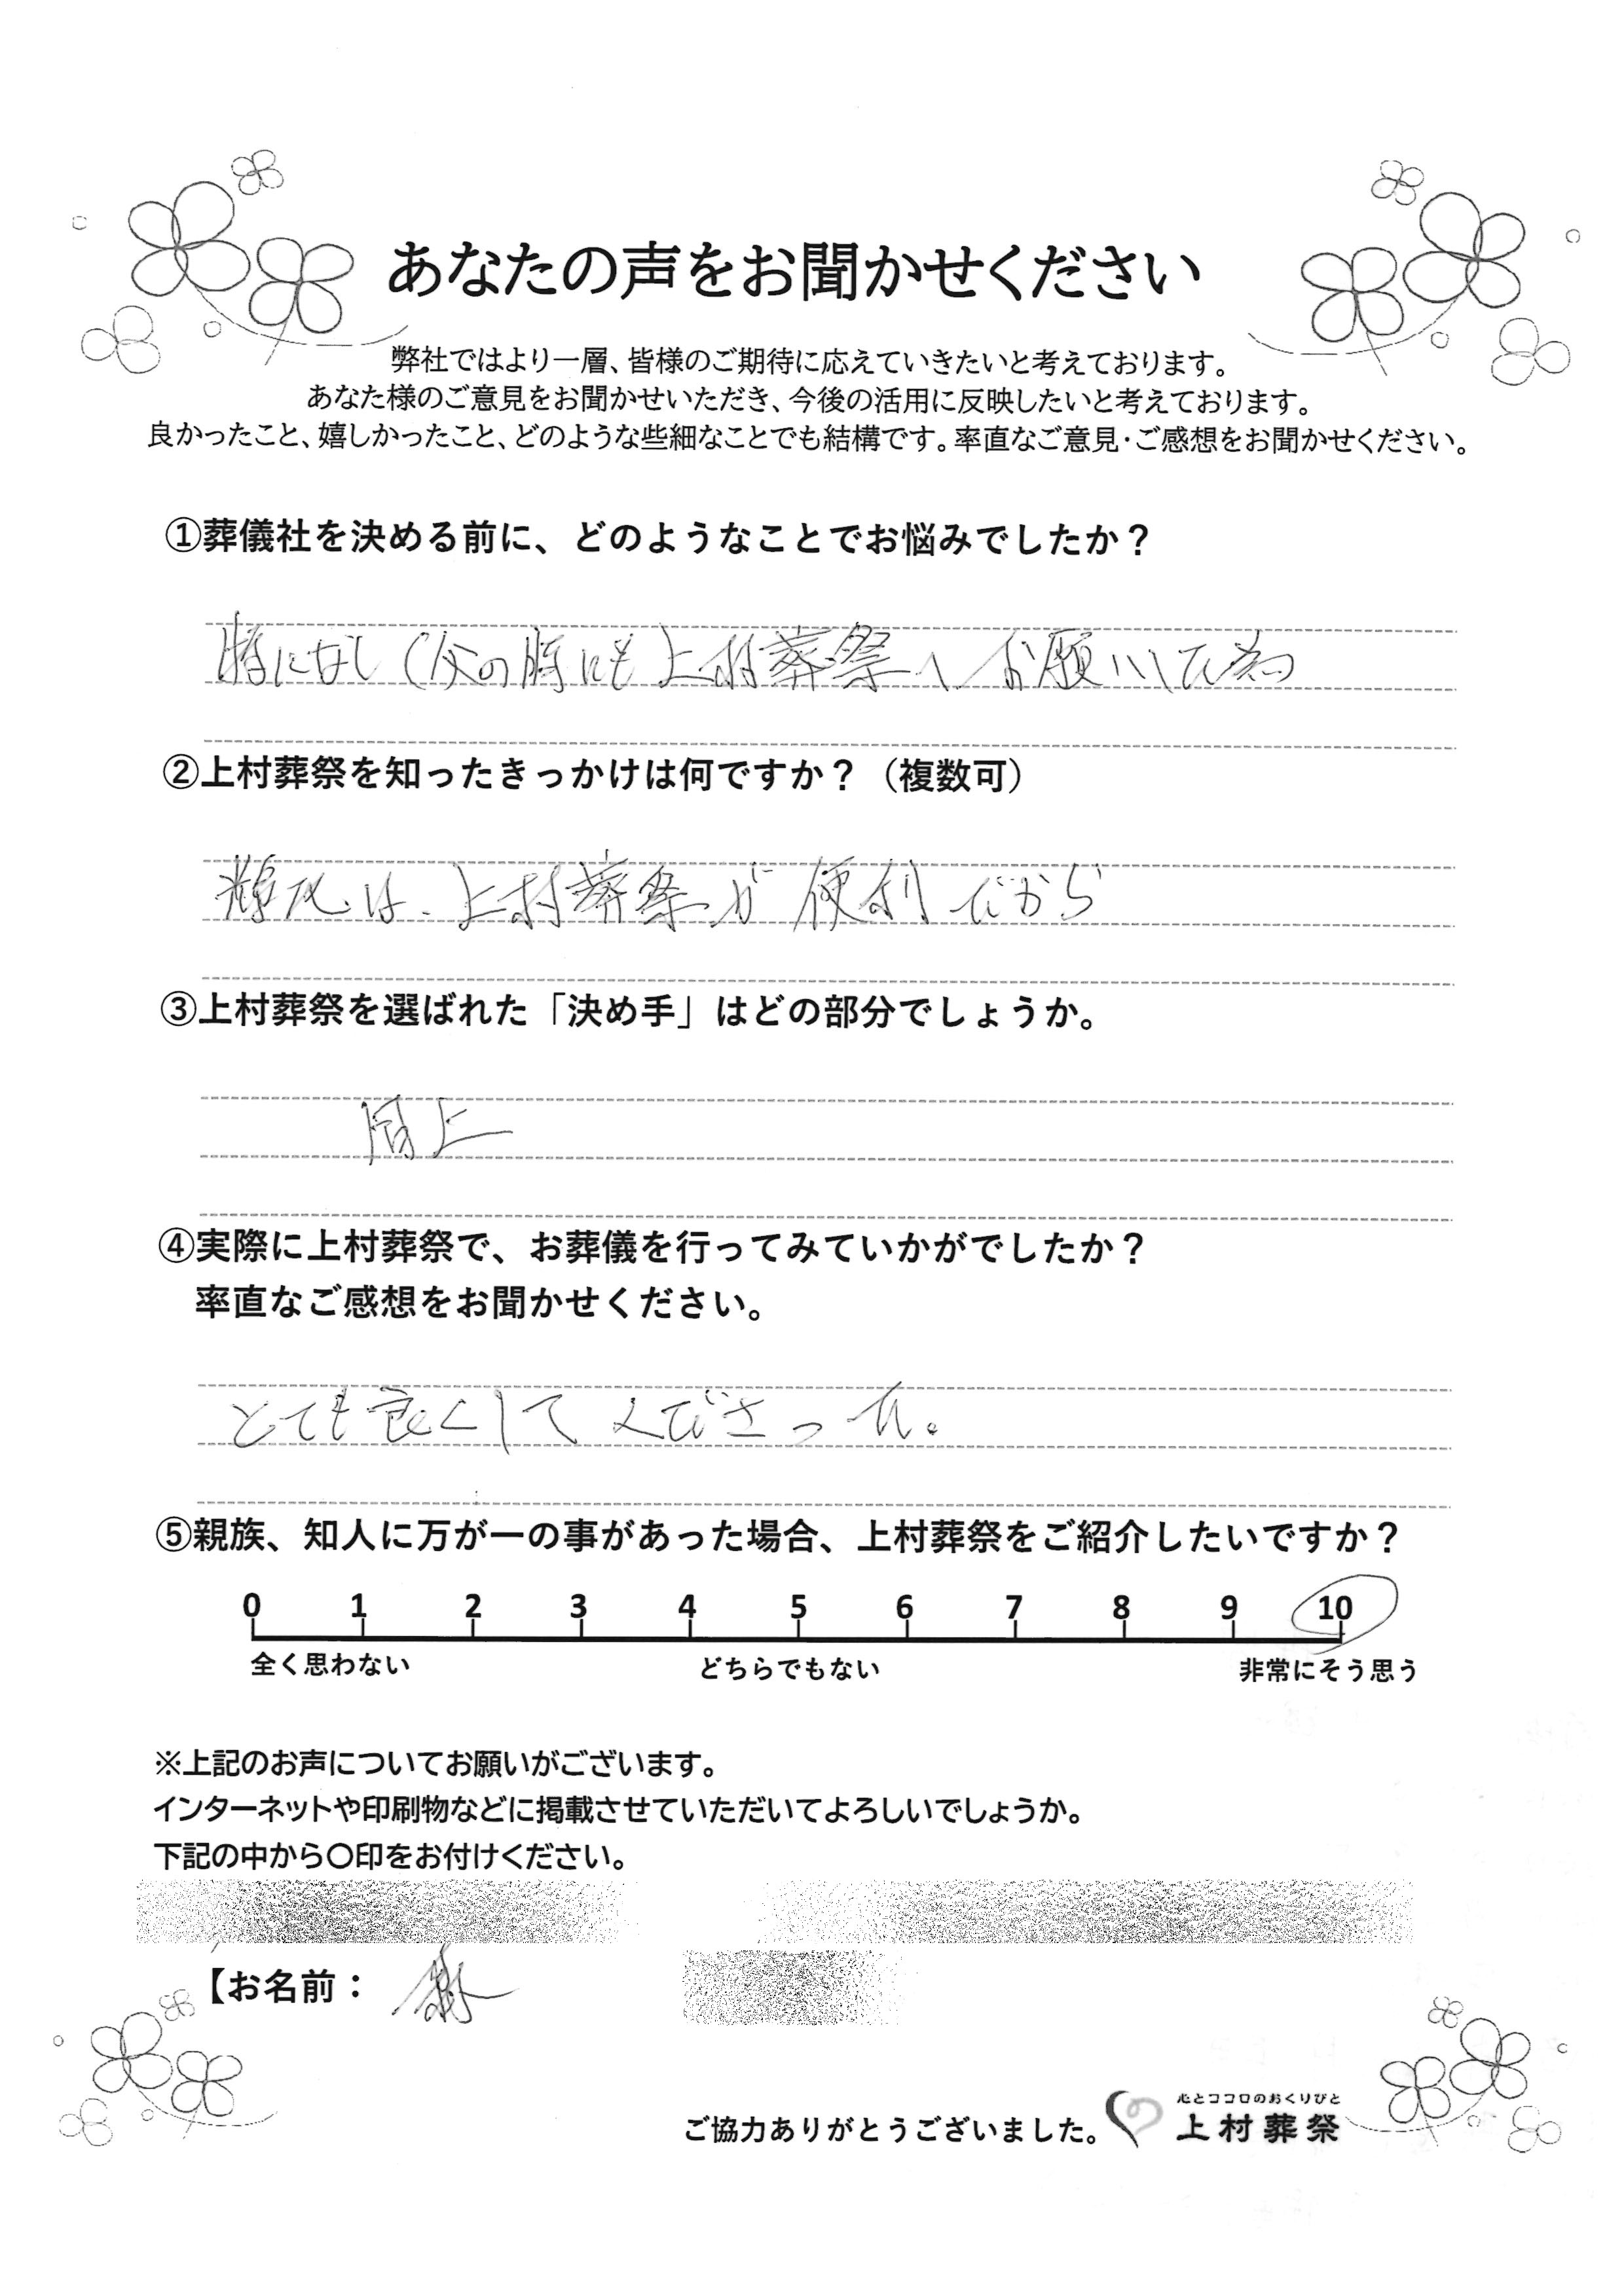 あなたの声をお聞かせください
弊社ではより一層、皆様のご期待に応えていきたいと考えております。
あなた様のご意見をお聞かせいただき、今後の活用に反映したいと考えております。
良かったこと、嬉しかったこと、どのような些細なことでも結構です。率直なご意見・ご感想をお聞かせください。
①葬儀社を決める前に、どのようなことでお悩みでしたか？
特になし（父の時にも上村葬祭へお願いした為
②上村葬祭を知ったきっかけは何ですか？（複数可）
は、上村葬祭が便利だから
③上村葬祭を選ばれた「決め手」はどの部分でしょうか。
同上
④実際に上村葬祭で、お葬儀を行ってみていかがでしたか？
率直なご感想をお聞かせください。
とても良くしてくださった。
⑤親族、知人に万が一の事があった場合、上村葬祭をご紹介したいですか？
0 1 2 3 4 5 6 7 8 9 10
全く思わない どちらでもない 非常にそう思う
※上記のお声についてお願いがございます。
インターネットや印刷物などに掲載させていただいてよろしいでしょうか。
下記の中から〇印をお付けください。
【お名前：
心とココロのおくりびと
ご協力ありがとうございました。 上村葬祭